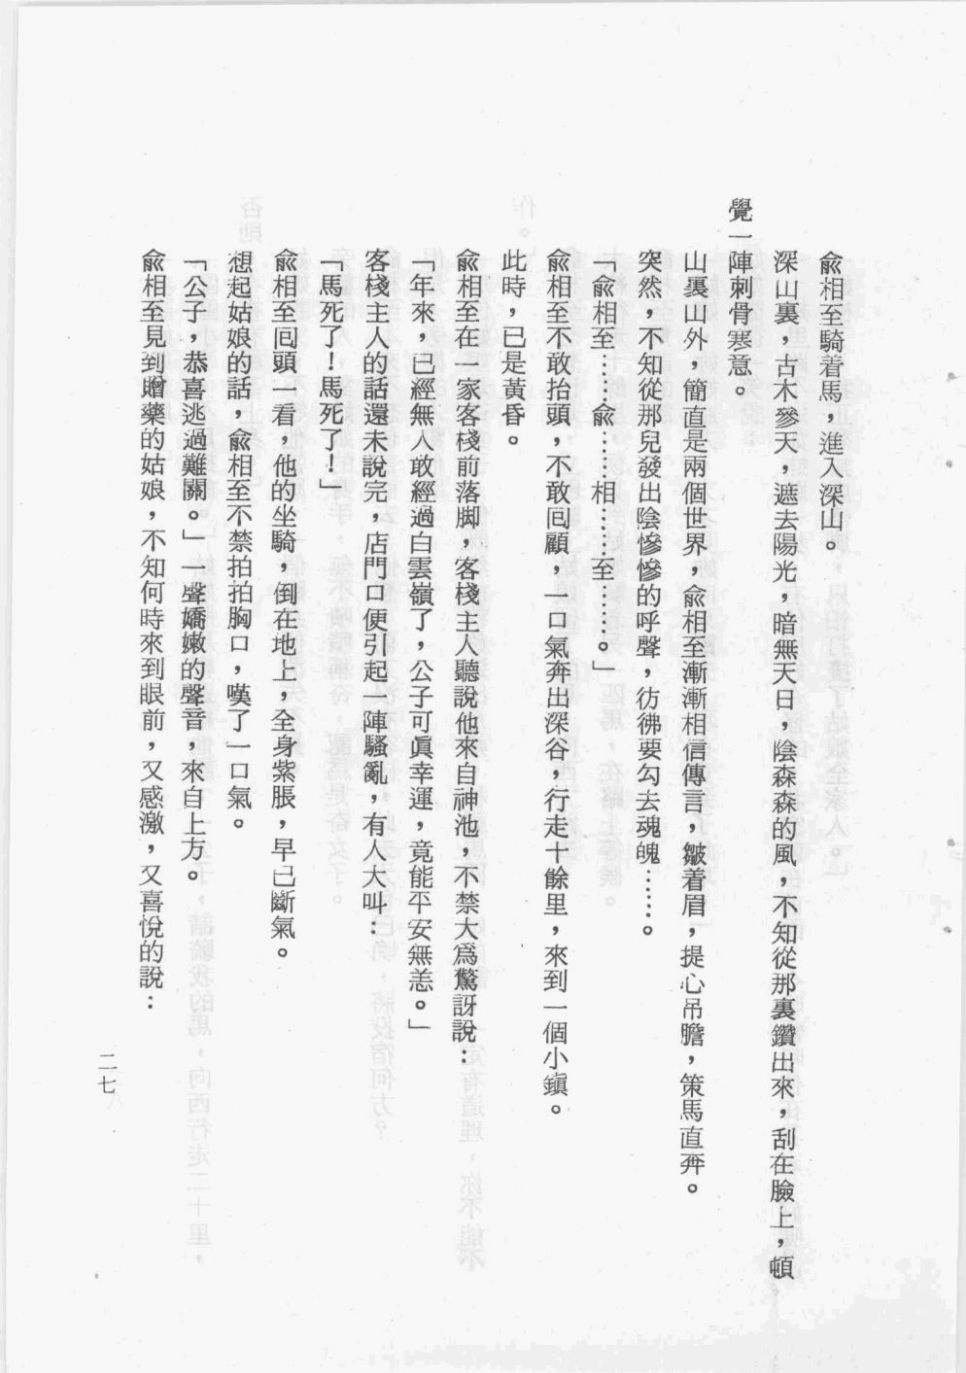 兪相至騎着馬，進入深山。
深山裏，古木參天，遮去陽光，暗無天日，陰森森的風，不知從那裏鑽出來，刮在臉上，頓
覺一陣刺骨寒意。
山裏山外，簡直是兩個世界，兪相至漸漸相信傳言，皺着眉，提心吊膽，策馬直奔。
突然，不知從那兒發出陰慘慘的呼聲，彷彿要勾去魂魄……。
「兪相至……兪……相……至……。」
兪相至不敢抬頭，不敢囘顧，一口氣奔出深谷，行走十餘里，來到一個小鎭。
此時，已是黃昏。
兪相至在一家客棧前落脚，客棧主人聽說他來自神池，不禁大爲驚訝說：
「年來，已經無人敢經過白雲嶺了，公子可眞幸運，竟能平安無恙。」
客棧主人的話還未說完，店門口便引起一陣騷亂，有人大叫：
「馬死了！馬死了！」
兪相至囘頭一看，他的坐騎，倒在地上，全身紫脹，早已斷氣。
想起姑娘的話，兪相至不禁拍拍胸口，嘆了一口氣。
「公子，恭喜逃過難關。」一聲嬌嫩的聲音，來自上方。
兪相至見到贈藥的姑娘，不知何時來到眼前，又感激，又喜悅的說：
二七